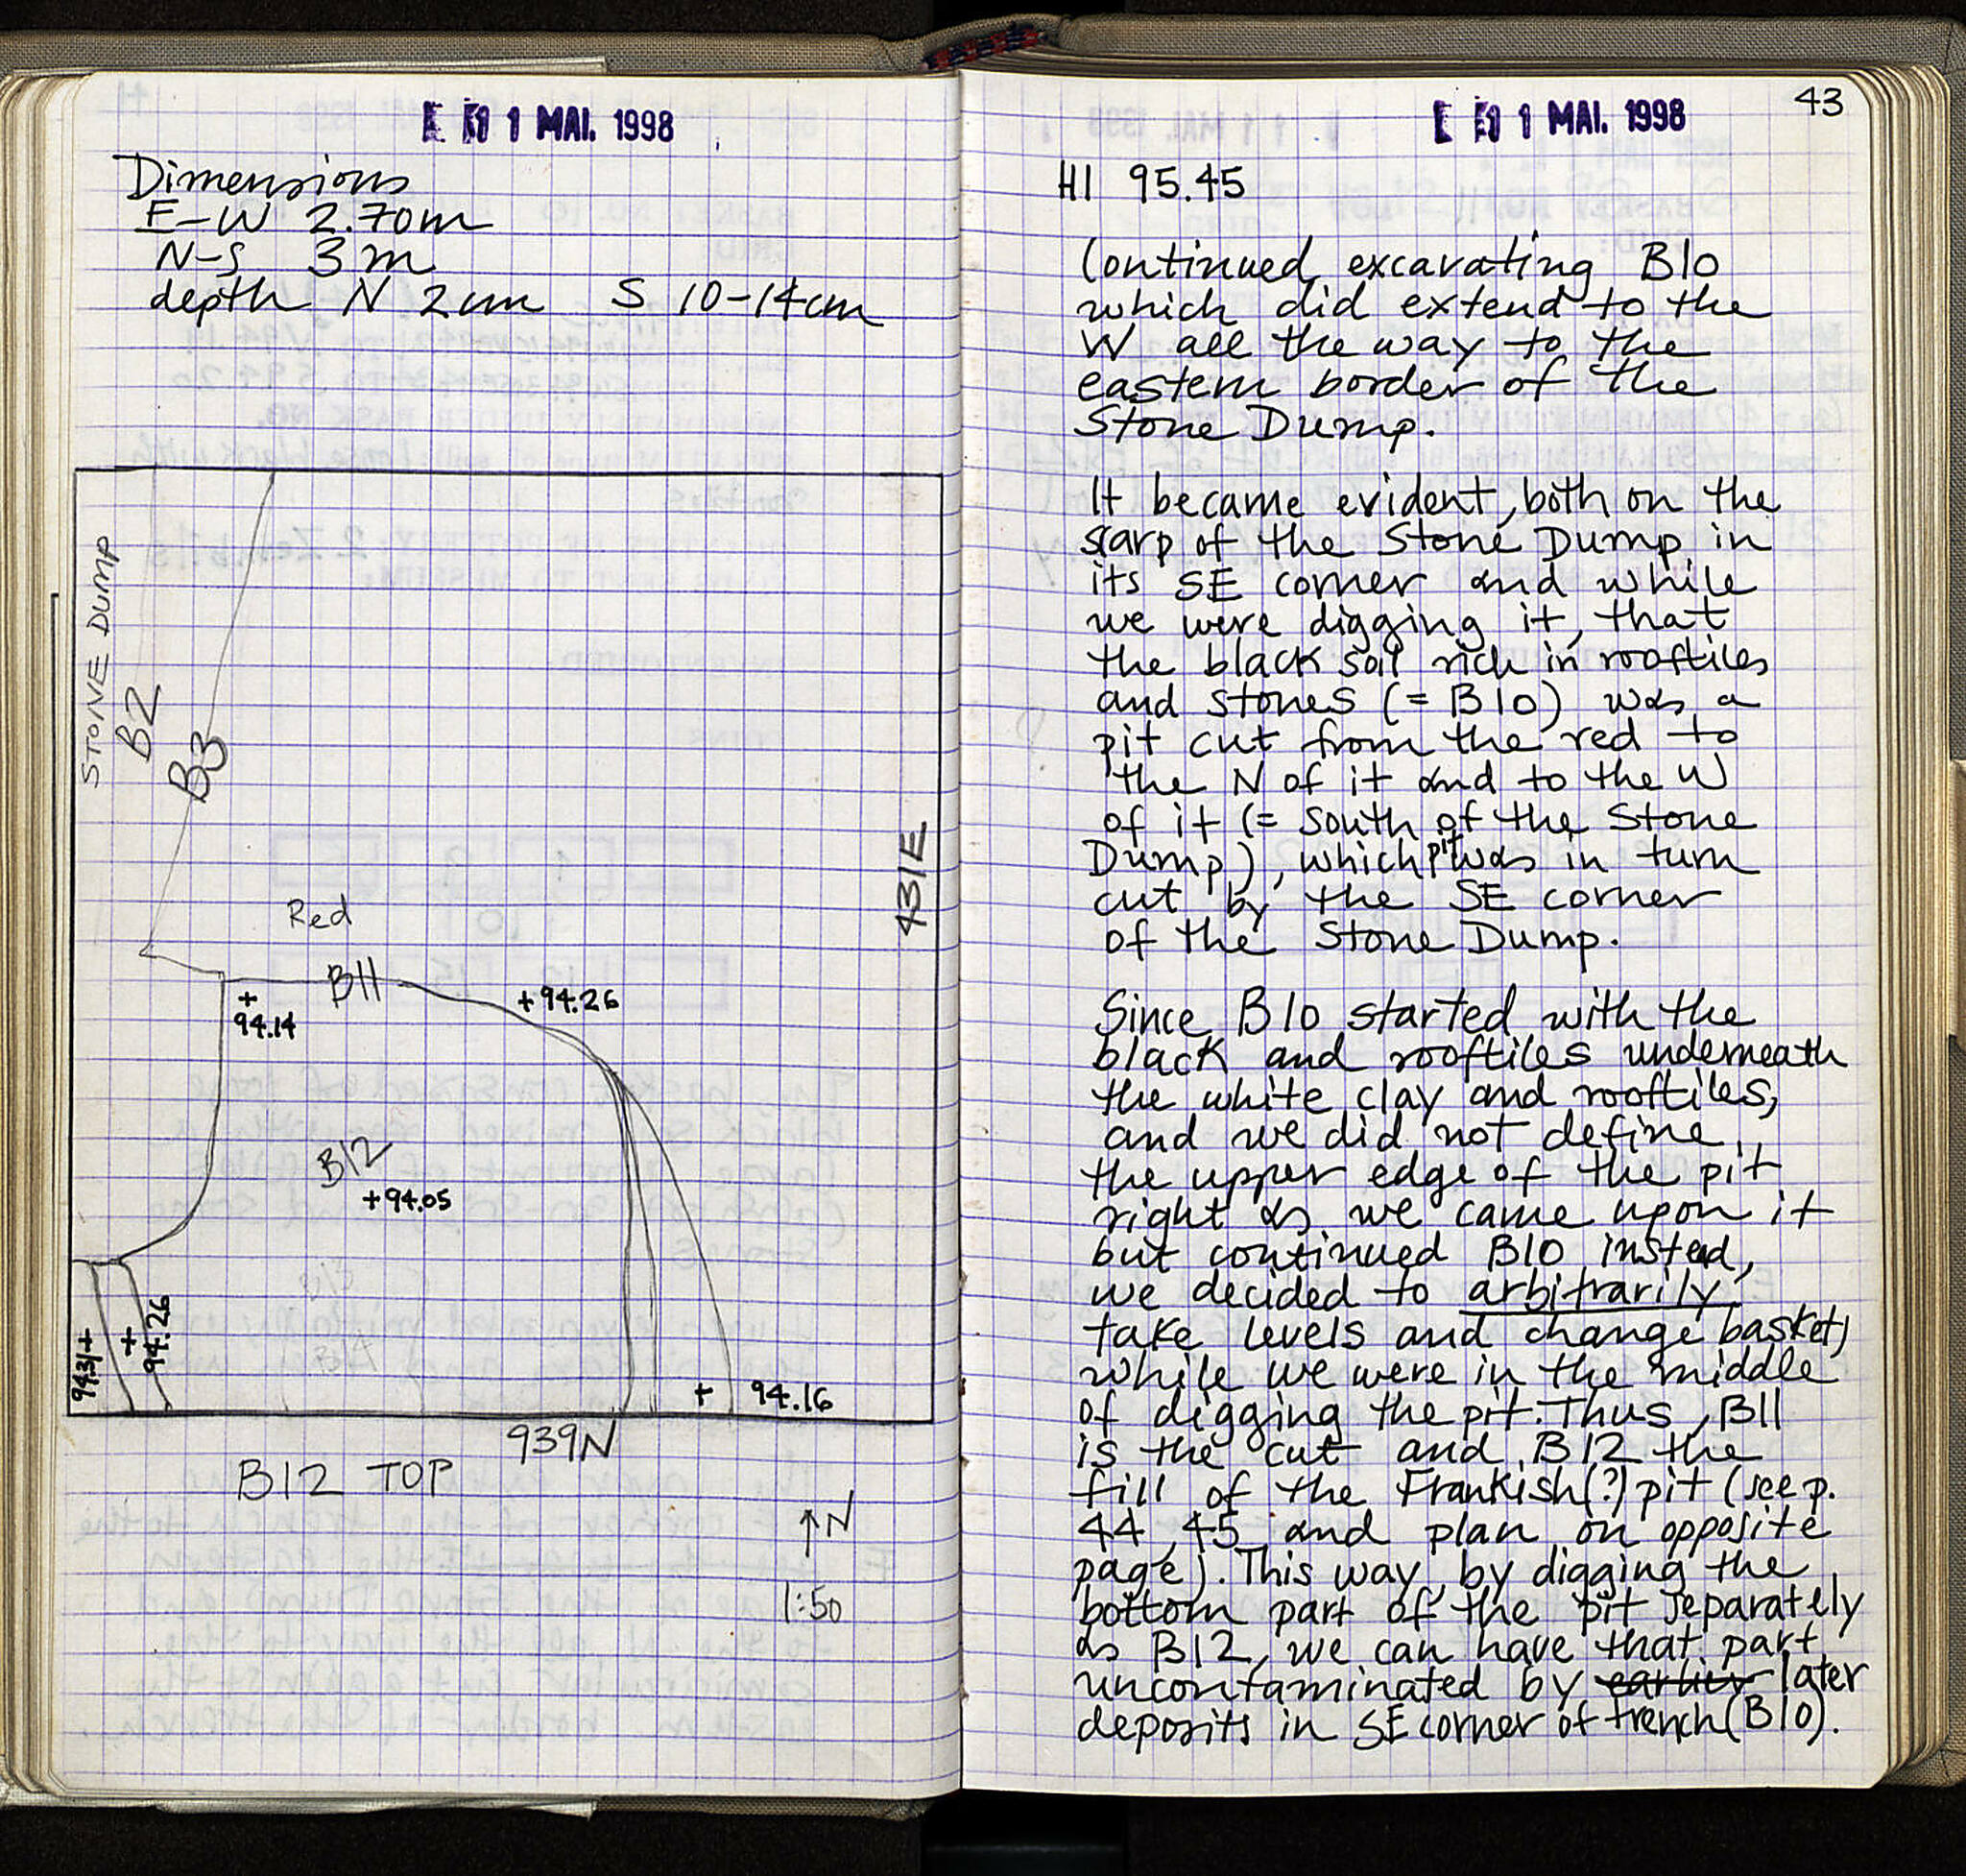 11 MAI. 1998
Dimensions
E-W 2.70m
N-S 3m
depth N 2cm S 10-14cm
STONE DUMP
B2
B3
431E
Red
B11
+94.26
+
94.14
B12
+94.05
B13
B14
94.31+
+
94.26
+ 94.16
939N
B12 TOP
↑N
1:50
11 MAI. 1998
43
HI 95.45
Continued excavating B10
which did extend to the
W all the way to the
eastern border of the
Stone Dump.
It became evident, both on the
scarp of the Stone Dump in
its SE corner and while
we were digging it, that
the black soil rich in rooftiles
and stones (= B10) was a
pit cut from the red to
the N of it and to the W
of it (= South of the Stone
Dump), which pit was in turn
cut by the SE corner
of the Stone Dump.
Since B10 started with the
black and rooftiles underneath
the white clay and rooftiles,
and we did not define
the upper edge of the pit
right as we came upon it
but continued B10 instead,
we decided to arbitrarily
take levels and change baskets
while we were in the middle
of digging the pit. Thus, B11
is the cut and B12 the
fill of the Frankish(?) pit (see p.
44, 45 and plan on opposite
page). This way, by digging the
bottom part of the pit separately
as B12, we can have that part
uncontaminated by earlier later
deposits in SE corner of trench (B10).